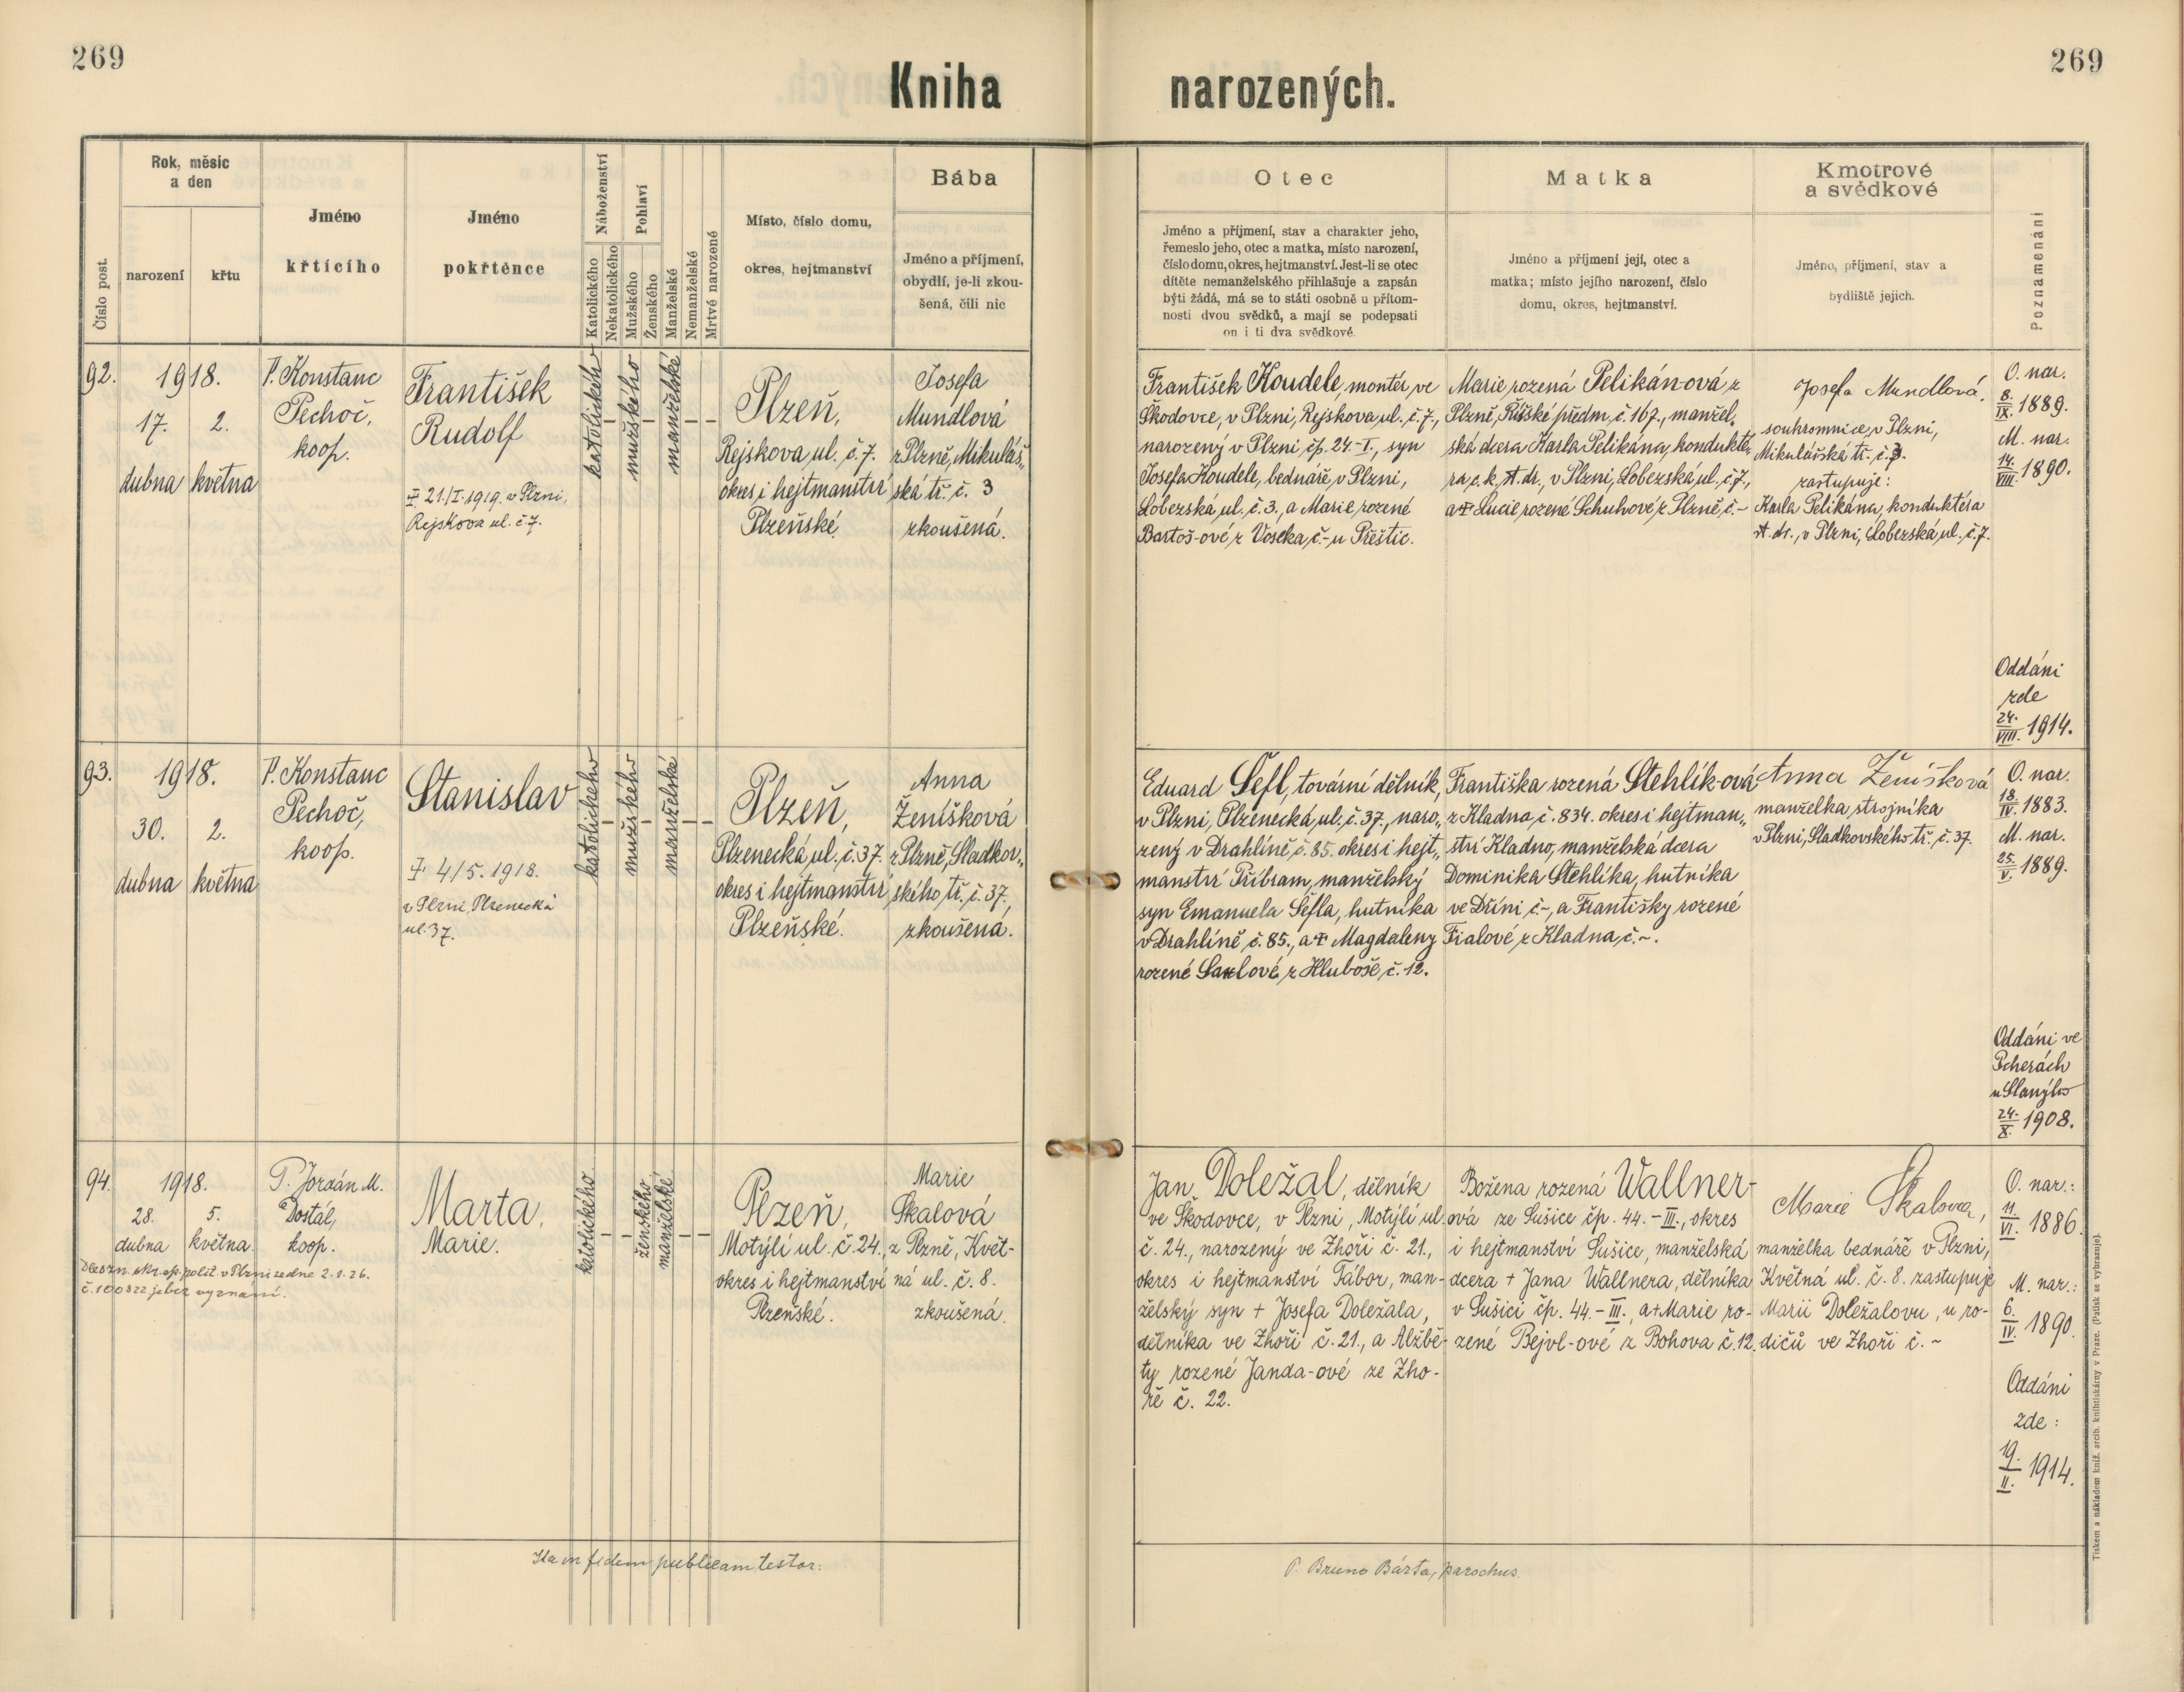 269
Kniha narozených.
269
Číslo post.
Rok, měsíc
a den
narození
křtu
Jméno
křtícího
Jméno
pokřtěnce
Náboženství
Katolického
Nekatolického
Pohlaví
Mužského
Ženského
Manželské
Nemanželské
Mrtvě narozené
Místo, číslo domu,
okres, hejtmanství
Bába
Jméno a příjmení,
obydlí, je-li zkou-
šená, čili nic
Otec
Jméno a příjmení, stav a charakter jeho,
řemeslo jeho, otec a matka, místo narození,
číslo domu, okres, hejtmanství. Jest-li se otec
dítěte nemanželského přihlašuje a zapsán
býti žádá, má se to státi osobně u přítom-
nosti dvou svědků, a mají se podepsati
on i ti dva svědkové.
Matka
Jméno a příjmení její, otec a
matka; místo jejího narození, číslo
domu, okres, hejtmanství.
Kmotrové
a svědkové
Jméno, příjmení, stav a
bydliště jejich.
Poznamenání
92.
1918.
17. 2.
dubna května
P. Konstanc
Pechoč,
koop.
František
Rudolf
21./I. 1919. v Plzni,
Rejskova ul. č. 7.
katolického
–
mužského
–
manželské
– –
Plzeň,
Rejskova ul. č. 7.
okres i hejtmanství
Plzeňské.
Josefa
Mundlová
z Plzně, Mikuláš„
ská tř. č. 3
zkoušená.
František Koudele, montér ve
Škodovce, v Plzni, Rejskova ul. č. 7.,
narozený v Plzni čp. 24.-I., syn
Josefa Koudele, bednáře v Plzni,
Lobezská ul. č. 3., a Marie rozené
Bartoš-ové z Voseka č.- u Přeštic.
Marie rozená Pelikán-ová z
Plzně, Říšské předm. č. 167., manžel„
ská dcera Karla Pelikána, kondukté„
ra c. k. st. dr., v Plzni, Lobezská ul. č. 7.,
a + Lucie rozené Schuhové z Plzně, č. –
Josefa Mundlová,
soukromnice, v Plzni,
Mikulášská tř. č. 3.
zastupuje:
Karla Pelikána, konduktéra
st. dr., v Plzni, Lobezská ul. č. 7.
O. nar.
8./IX. 1889.
M. nar.
14./VIII. 1890.
Oddáni
zde
24./VIII. 1914.
93.
1918.
30. 2.
dubna května
P. Konstanc
Pechoč,
koop.
Stanislav
4/5. 1918.
v Plzni, Plzenecká
ul. 37.
katolického
–
mužského
–
manželské
– –
Plzeň,
Plzenecká ul. č. 37.
okres i hejtmanství
Plzeňské.
Anna
Ženíšková
z Plzně, Sladkov„
ského tř. č. 37.,
zkoušená.
Eduard Šefl, tovární dělník,
v Plzni, Plzenecká ul. č. 37., naro„
zený v Drahlíně č. 85. okres i hejt„
manství Příbram, manželský
syn Emanuela Šefla, hutníka
v Drahlíně č. 85., a + Magdaleny
rozené z Hluboše č. 12.
Františka rozená Stehlík-ová
z Kladna č. 834. okres i hejtman„
ství Kladno, manželská dcera
Dominika Stehlíka, hutníka
ve Dříni č.-, a Františky rozené
Fialové z Kladna, č. ~.
Anna Ženíšková
manželka strojníka
v Plzni, Sladkovského tř. č. 37.
O. nar.
18./IV. 1883.
M. nar.
25./V. 1889.
Oddáni ve
Pcherách
u Slaného
24./X. 1908.
94.
1918.
28. 5.
dubna května
P. Jordán M.
Dostál,
koop.
Marta,
Marie.
Dle zn. okr. sp. polit. v Plzni ze dne 2.1.26.
č. 100822 je bez vyznání.
katolického
–
–
ženského
manželské
– –
Plzeň,
Motýlí ul. č. 24.,
okres i hejtmanství
Plzeňské.
Marie
Skalová
z Plzně, Květ-
ná ul. č. 8.
zkoušená.
Jan Doležal, dělník
ve Škodovce, v Plzni, Motýlí ul.
č. 24., narozený ve Zhoři č. 21.,
okres i hejtmanství Tábor, man-
želský syn + Josefa Doležala,
dělníka ve Zhoři č. 21., a Alžbě-
ty rozené Janda-ové ze Zho-
ře č. 22.
Božena rozená Wallner-
ová ze Sušice čp. 44.-III., okres
i hejtmanství Sušice, manželská
dcera + Jana Wallnera, dělníka
v Sušici čp. 44.-III., a + Marie ro-
zené Bejvl-ové z Bohova č. 12.
Marie Skalova,
manželka bednáře v Plzni,
Květná ul. č. 8. zastupuje
Marii Doležalovu, u ro-
dičů ve Zhoři č. ~
O. nar.:
11./VI. 1886.
M. nar.:
6./IV. 1890.
Oddáni
zde:
19./II. 1914.
Ita in fidem publicam testor:
P. Bruno Bárta, parochus.
Tiskem a nákladem kníž. arcib. knihtiskárny v Praze. (Patisk se vyhrazuje).